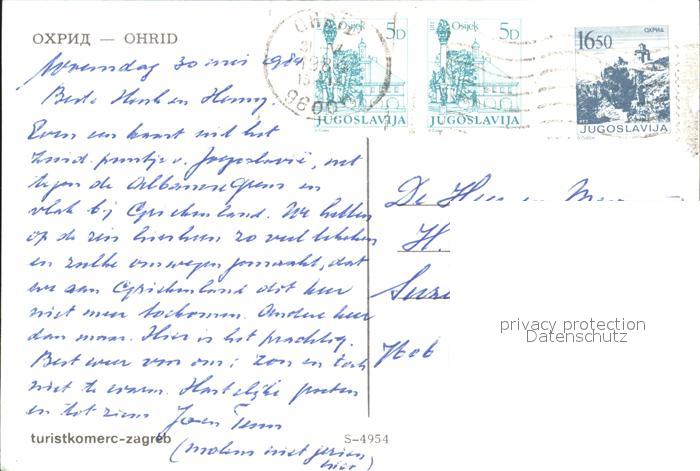 ОХРИД — OHRID
Woensdag 30 mei 1984
Beste Henk en Henny
Even een kaart uit het
zuid. puntje v. Joegoslavië, net
tegen de Albanese Grens en
vlak bij Griekenland. We hebben
op de reis hierheen zo veel bekeken
en zulke omwegen gemaakt, dat
we aan Griekenland dit keer
niet meer toekomen. Andere keer
dan maar. Hier is het prachtig.
Best weer voor ons: zon en toch
niet te warm. Hartelijke groeten
en tot ziens
(molens niet gezien
hier)
turistkomerc-zagreb
S-4954
OHRID
96000
Osijek 5D
JUGOSLAVIJA
Osijek 5D
JUGOSLAVIJA
16.50 ОХРИД
JUGOSLAVIJA
De Heer en
H.
privacy protection
Datenschutz